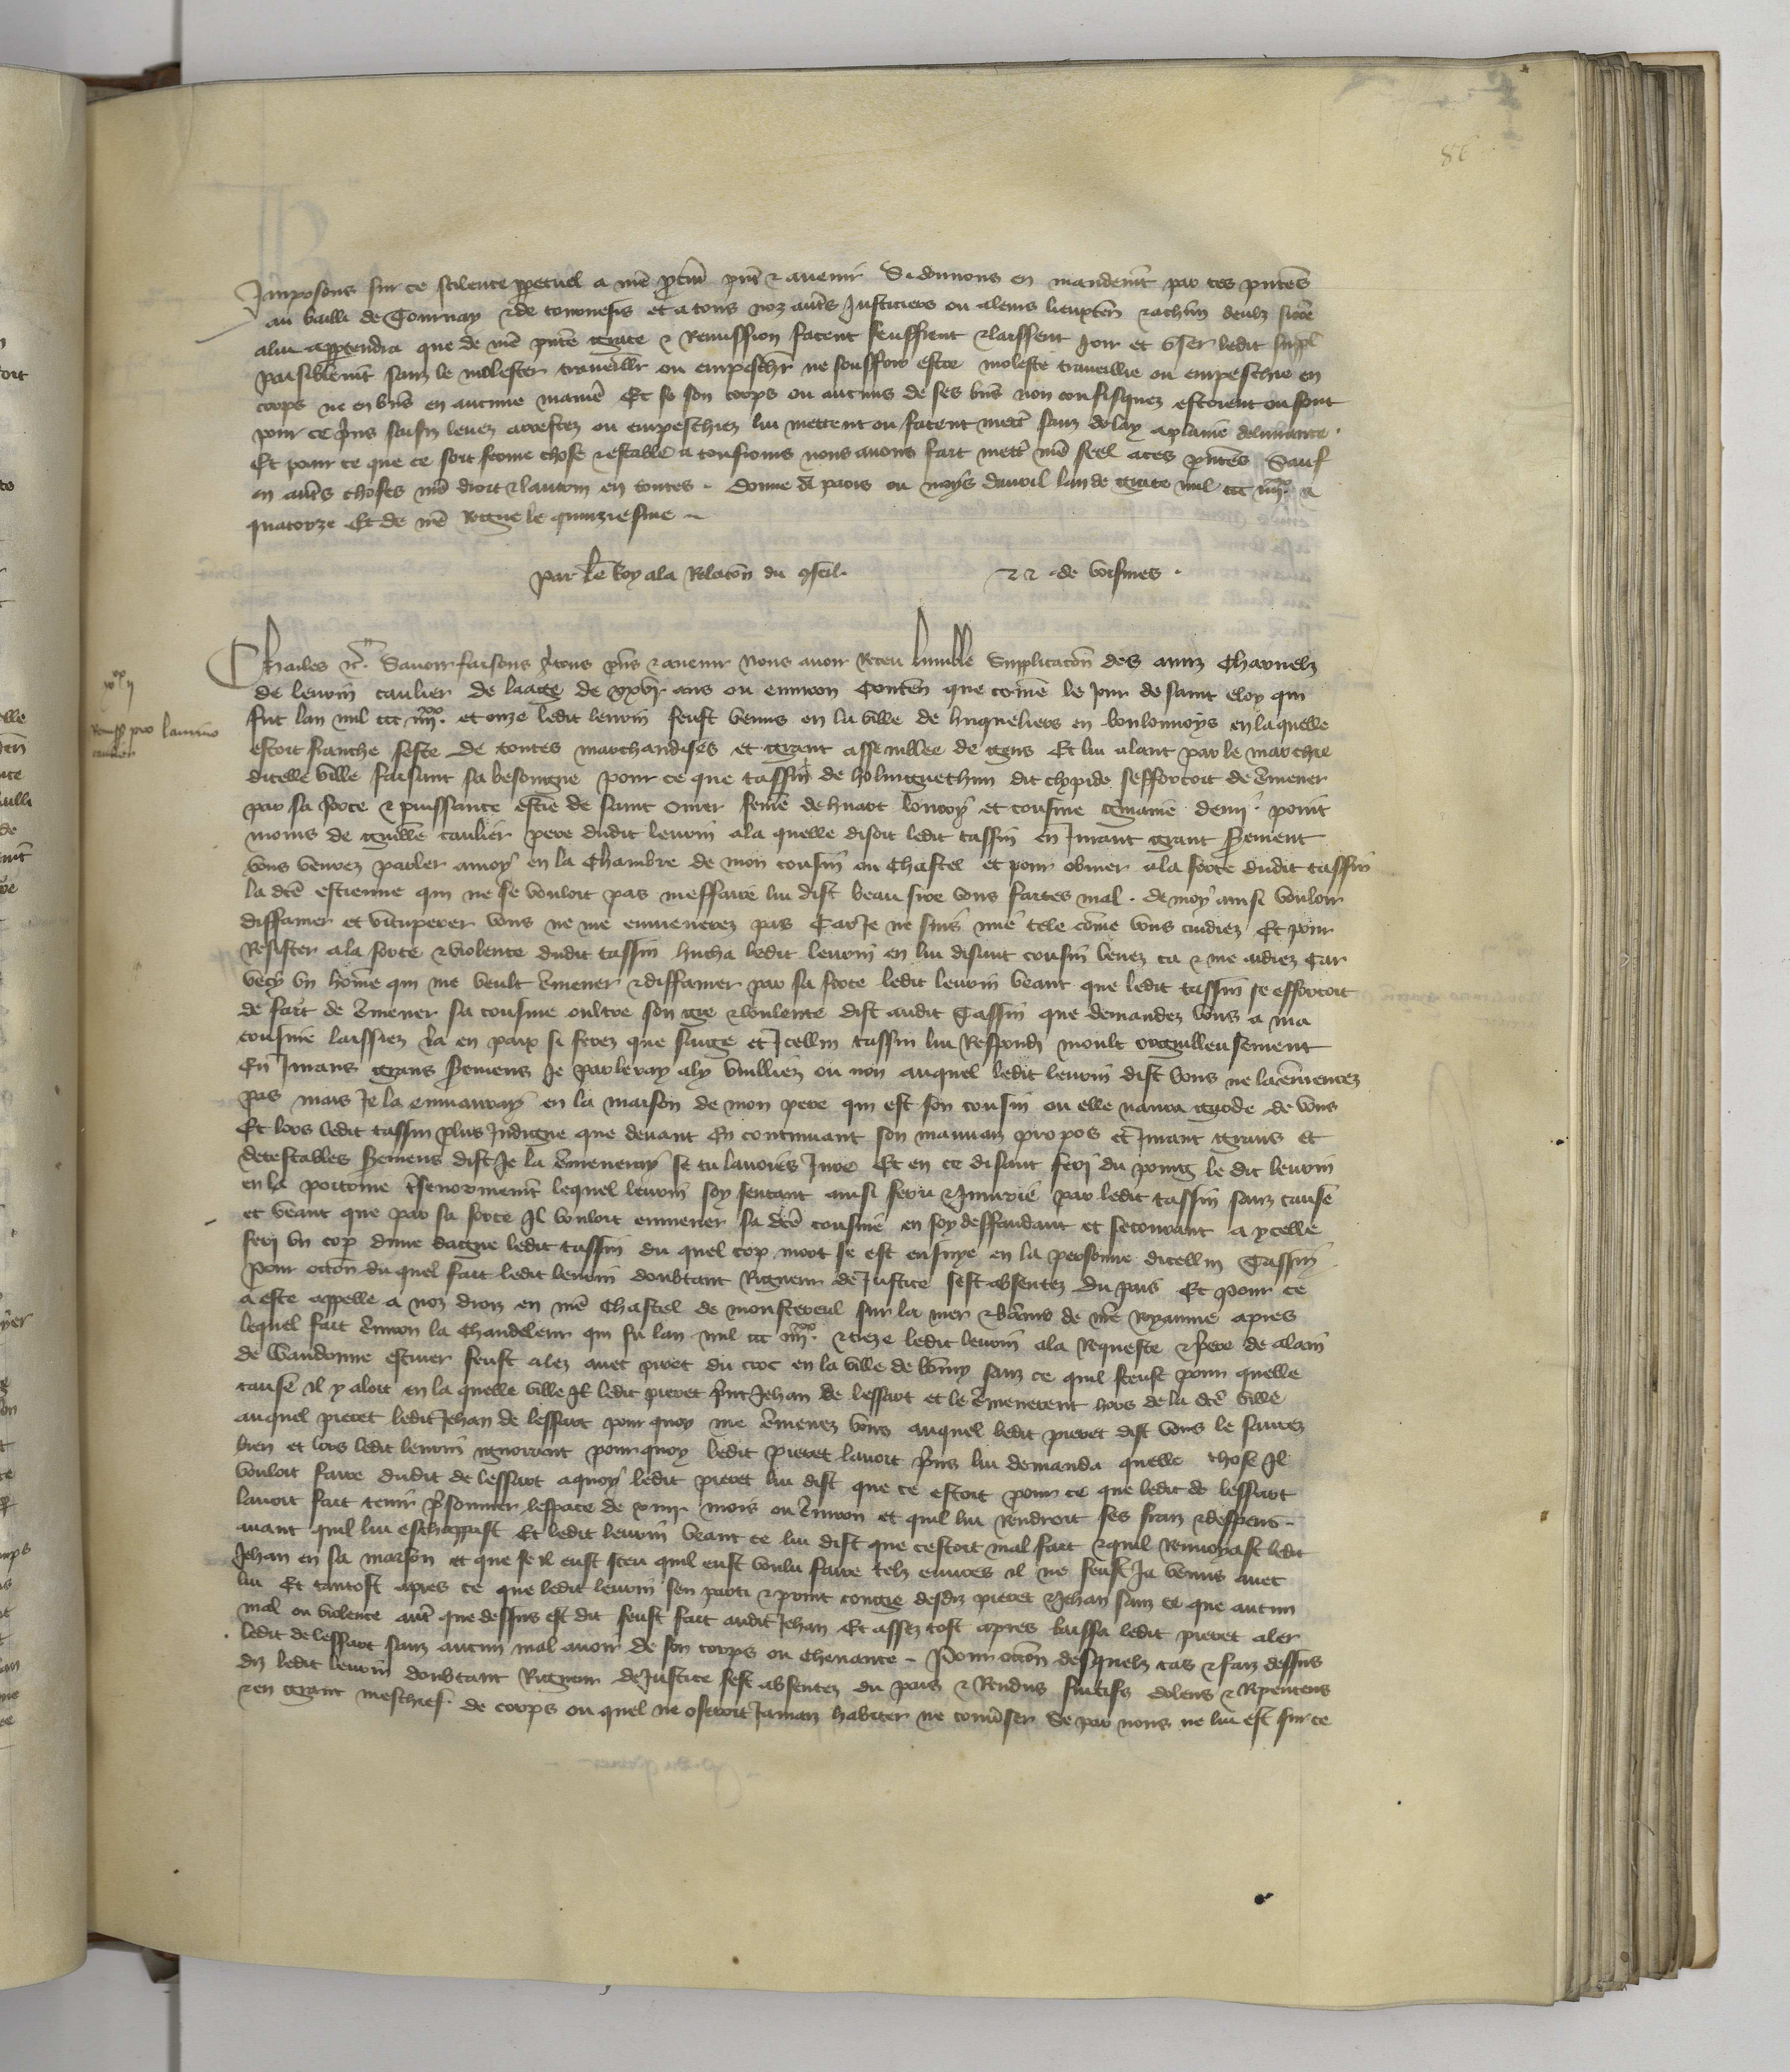 86
Imposons sur ce scilence ppetuel a nre pcur pnt & avenir Si donnons en mandemt par ces pntes
au bailli de Tournay & de tournesis et a tous noz autes Justiciers ou aleurs lieuxten & achun deulz sice
a lui apptendra que de nre pnte grace & Remission facent seuffrent & laissent Joir et user ledit suppl
paisiblemt sanz le molester travaillr ou empeschr ne souffrir estre moleste travaillie ou empeschie en
corps ne en bns en aucune manie Et se son corps ou aucuns de ses bns non confisquez estoient ou sont
pour ce pris saisiz levez arrestez ou empeschiez lui mettent ou facent mett sanz delay a plaine delivrance .
Et pour ce que ce soit ferme chose & estable a tousiours nous avons fait mett nre seel a ces pntes Sauf
en autes choses nre droit & lautrui en toutes . donne a paris ou moys davril lan de grace mil ccc iiiixx &
quatorze Et de nre Regne le quinziesme
par le Roy a la Relacon du gseil . de voisines .
Charles &c. Savoir faisons a tous pns & avenir Nous avoir Receu humble supplicacon des amiz Charnelz
de levrin caulier de laage de xxvi ans ou environ Conten que come le Jour de saint eloy qui
fut lan mil ccc iiiixx et onze ledit levrin feust venus en la ville de huqueliers en boulonnoys en laquelle
estoit franche feste de toutes marchandises et grant assemblee de gens Et lui alant par le marchie
dicelle ville faisant sa besoingne pour ce que tassin de holinguethun dit chypide sefforcoit de emener
par sa force & puissance estiee de saint omer feme de huart lonroy et cousine gmaine demi . point
moins de guille caulier pere dudit levrin a la quelle disoit ledit tassin en Jurant grant serement
vous venrez parler a moy en la Chambre de mon cousin ou Chastel et pour obvier a la force dudit tassin
la dce estienne qui ne se vouloit pas meffaire lui dist beau sire vous faites mal . de moy ainsi vouloir
diffamer et vituperer vous ne me emmenerez pas Car Je ne suis mie tele come vous cuidiez Et pour
Resister a la force & violence dudit tassin hucha ledit levrin en lui disant cousin venez ca & me aidiez Car
vecy un home qui me veult emener & diffamer par sa force ledit levrin veant que ledit tassin se efforcoit
de fait de emener sa cousine oultre son gre & voulente dist audit Tassin que demandez vous a ma
cousine laissiez la en paix si ferez que saige et Icellui tassin lui Respondi moult orguilleusement
En Jurans grans seremens Je parleray a ly vuilliez ou non auquel ledit levrin dist vous ne la emenrez
pas mais Je la emmanray en la maison de mon pere qui est son cousin ou elle naura garde de vous
Et lors ledit tassin plus Indigne que devant En continuant son mauvaiz propos et Jurant grans et
detestables seremens dist Je la emeneray se tu lavoies Jure Et en ce disant feri du poing le dit levrin
en la poitrine tsenormemt lequel levrin soy sentant ainsi feru & Iniurie par ledit tassin sanz cause
et veant que par sa force Il vouloit emmener sa dce cousine en soy deffendant et secourant a ycelle
feri un cop dune dague ledit tassin du quel cop mort se est ensuye en la personne dicellui Tassin
Pour occon du quel fait ledit levrin doubtant Rigueur de Justice sest absentez du pais Et Pour ce
a este appelle a noz droiz en nre Chastel de monstereul sur la mer & baniz de nre Royaume apres
lequel fait environ la Chandeleur qui fu lan mil ccc iiiixx & treze ledit levrin a la Requeste & priere de alain
de wandonne escuier feust alez avec pieret du croc en la ville de bomy sanz ce quil sceust pour quelle
cause il y aloit en la quelle ville Il ledit pieret print Jehan de lessart et le emenerent hors de la dce ville
auquel pieret ledit Jehan de lessart pour quoy me emenez vous auquel ledit pieret dist vous le saurez
bien et lors ledit levrin ignorrent pour quoy ledit pieret lavoit prins lui demanda quelle chose Il
vouloit faire dudit de lessart a quoy ledit pieret lui dist que ce estoit pour ce que ledit de lessart
lavoit fait tenir prisonnier lespace de xiiii mois ou environ et quil lui Rendroit ses fraiz & despens .
avant quil lui eschappast Et ledit levrin veant ce lui dist que cestoit mal fait & quil Renvoyast ledit
Jehan en sa maison et que se il eust sceu quil eust voulu faire telz euvres il ne feust Ja venus avec
lui Et tantost apres ce que ledit levrin sen parti & print congie desdiz pieret & Jehan sanz ce que aucun
mal ou violence autre que dessus est dit feust fait audit Jehan Et assez tost apres laissa ledit pieret aler
ledit de lessart sanz aucun mal avoir de son corps ou chevance . Pour occon desquelz cas & faiz dessus
diz ledit levrin doubtant Rigueur de Justice sest absentez du pais & Rendus fuitifs dolens & Repentens
& en grant meschief de corps ou quel ne oseroit Jamaiz habiter ne converser se par nous ne lui est sur ce
Remiss pro laurino
caulier